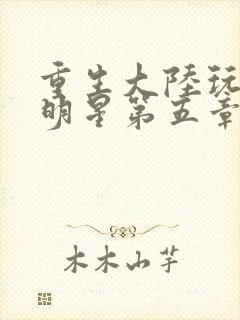 重生大陸玩
明星第五章
木木山芋